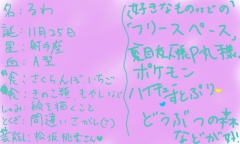 名：るわ
誕：11月25日
星：射手座
血：A型
食：さくらんぼ いちご
食：きのこ類 もやしなど
しゅみ：絵を描くこと
とくぎ：間違いさがし(？)
芸能人：松坂桃李さん♥
好きなものいどの
「フリースペース」
夏目友人帳
ポケモン
ハイキュー
どうぶつの森
などが好き